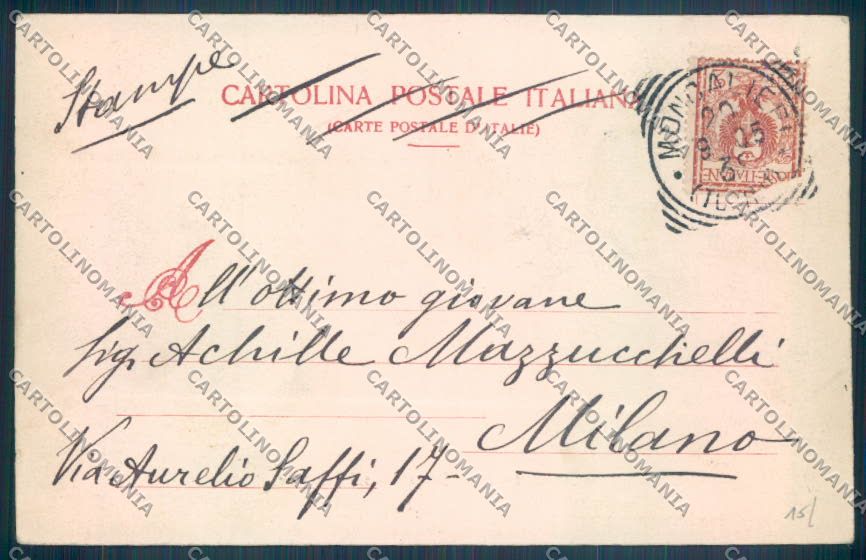 Stampe
CARTOLINA POSTALE ITALIANA
(CARTE POSTALE D'ITALIE)
MONCALIERI
(TORINO)
All'ottimo giovane
Sig. Achille Mazzucchelli
Milano
Via Aurelio Saffi, 17-
15/
CARTOLINOMANIA